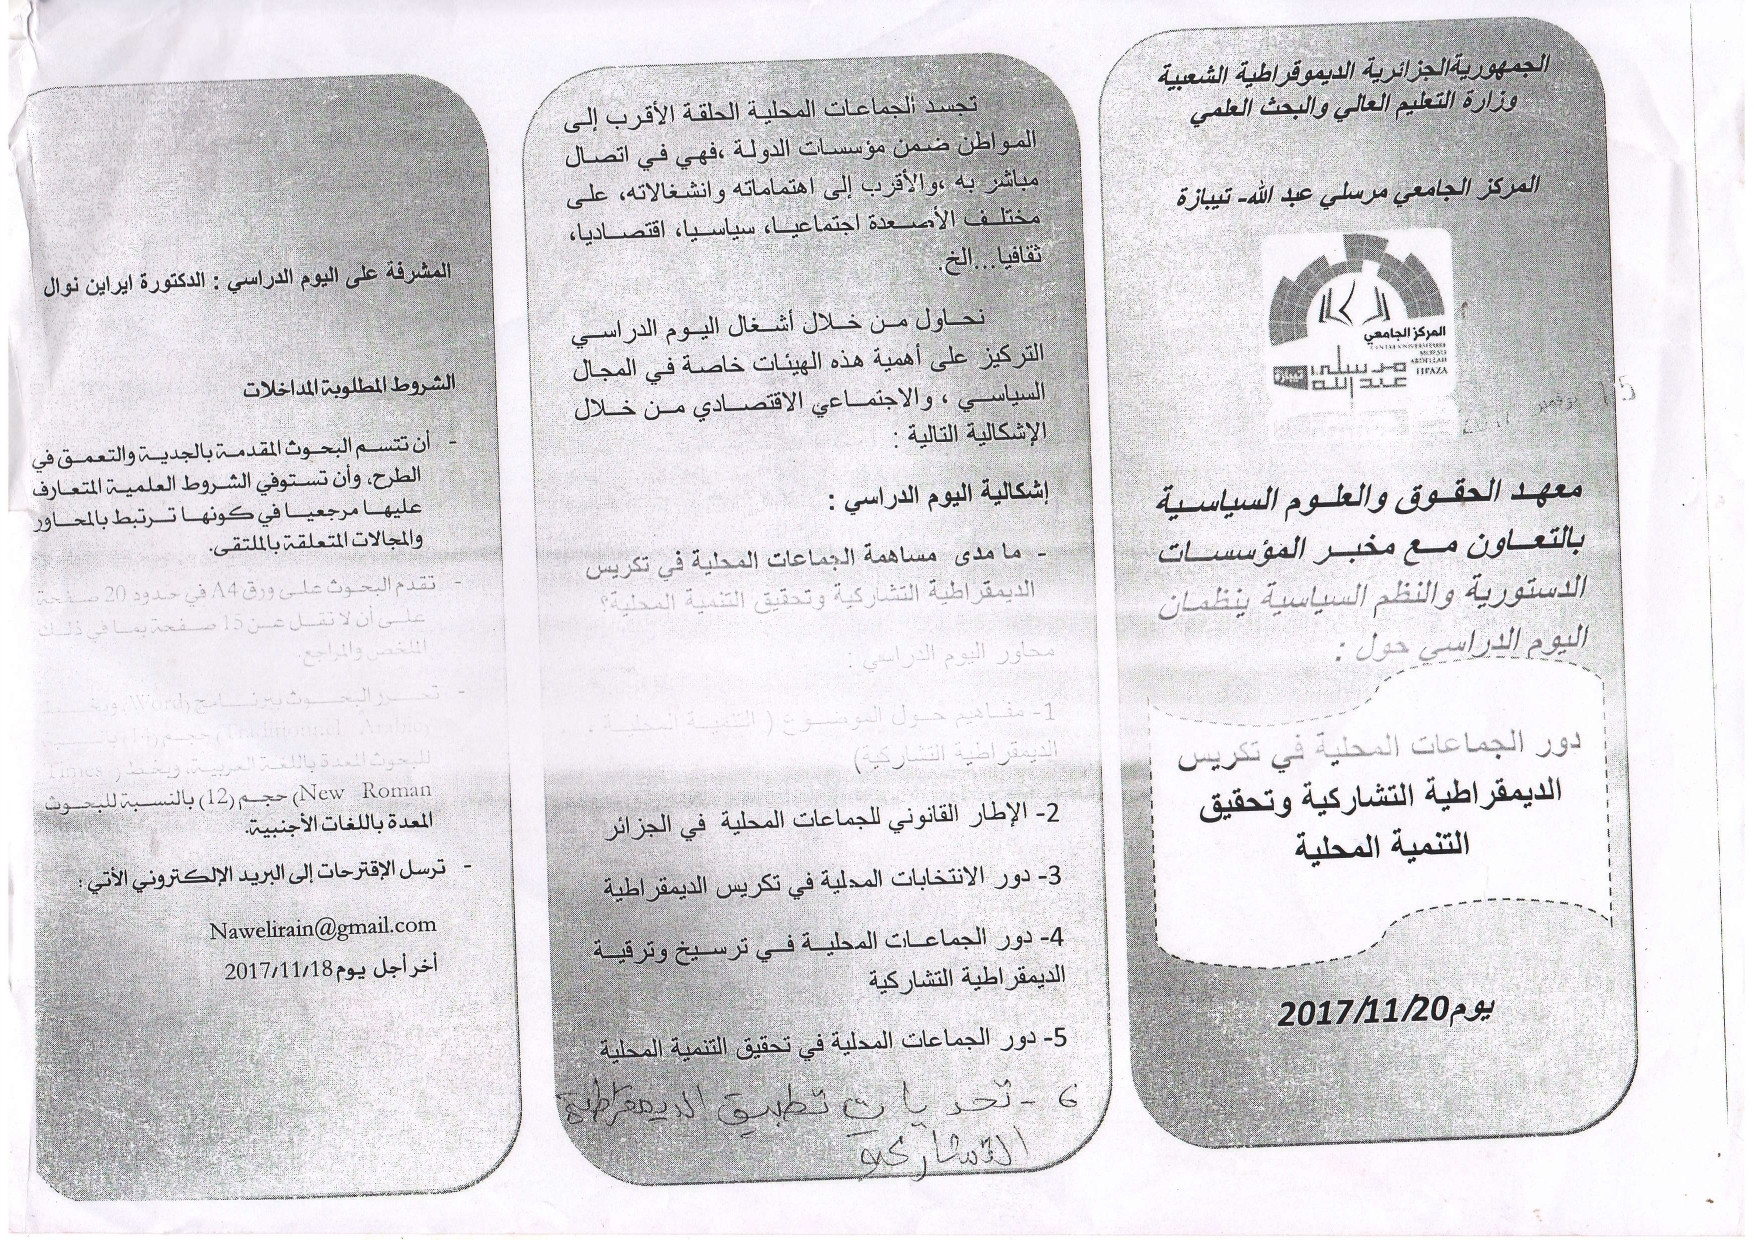 الجمهوريةالجزائرية الديموقراطية الشعبية
وزارة التعليم العالي والبحث العلمي
المركز الجامعي مرسلي عبد الله- تيبازة
المركز الجامعي
CENTRE UNIVERSITAIRE
MORSLI
ABDELLAH
TIPAZA
مرسلي
عبد الله
تيبازة
15 نوفمبر
معهد الحقوق والعلوم السياسية
بالتعاون مع مخبر المؤسسات
الدستورية والنظم السياسية ينظمان
اليوم الدراسي حول :
دور الجماعات المحلية في تكريس
الديمقراطية التشاركية وتحقيق
التنمية المحلية
يوم2017/11/20
تجسد الجماعات المحلية الحلقة الأقرب إلى
المواطن ضمن مؤسسات الدولة ،فهي في اتصال
مباشر به ،والأقرب إلى اهتماماته وانشغالاته، على
مختلف الأصعدة اجتماعيا، سياسيا، اقتصاديا،
ثقافيا...الخ.
نحاول من خلال أشغال اليوم الدراسي
التركيز على أهمية هذه الهيئات خاصة في المجال
السياسي ، والاجتماعي الاقتصادي من خلال
الإشكالية التالية :
إشكالية اليوم الدراسي :
- ما مدى مساهمة الجماعات المحلية في تكريس
الديمقراطية التشاركية وتحقيق التنمية المحلية؟
محاور اليوم الدراسي :
1- مفاهيم حول الموضوع ( التنمية المحلية ،
الديمقراطية التشاركية)
2- الإطار القانوني للجماعات المحلية في الجزائر
3- دور الانتخابات المحلية في تكريس الديمقراطية
4- دور الجماعات المحلية في ترسيخ وترقية
الديمقراطية التشاركية
5- دور الجماعات المحلية في تحقيق التنمية المحلية
6 - تحديات تطبيق الديمقراطية
التشاركية
المشرفة على اليوم الدراسي : الدكتورة ايراين نوال
الشروط المطلوبة المداخلات
- أن تتسم البحوث المقدمة بالجدية والتعمق في
الطرح، وأن تستوفي الشروط العلمية المتعارف
عليها مرجعيا في كونها ترتبط بالمحاور
والمجالات المتعلقة بالملتقى.
- تقدم البحوث على ورق A4 في حدود 20 صفحة
على أن لا تقل عن 15 صفحة بما في ذلك
الملخص والمراجع.
- تحرر البحوث ببرنامج (Word) وبخط
(Traditionnel Arabic) حجم (14) بالنسبة
للبحوث المعدة باللغة العربية، وبخط ( Times
New Roman) حجم (12) بالنسبة للبحوث
المعدة باللغات الأجنبية.
- ترسل الإقترحات إلى البريد الإلكتروني الأتي :
Nawelirain@gmail.com
أخر أجل يوم 2017/11/18